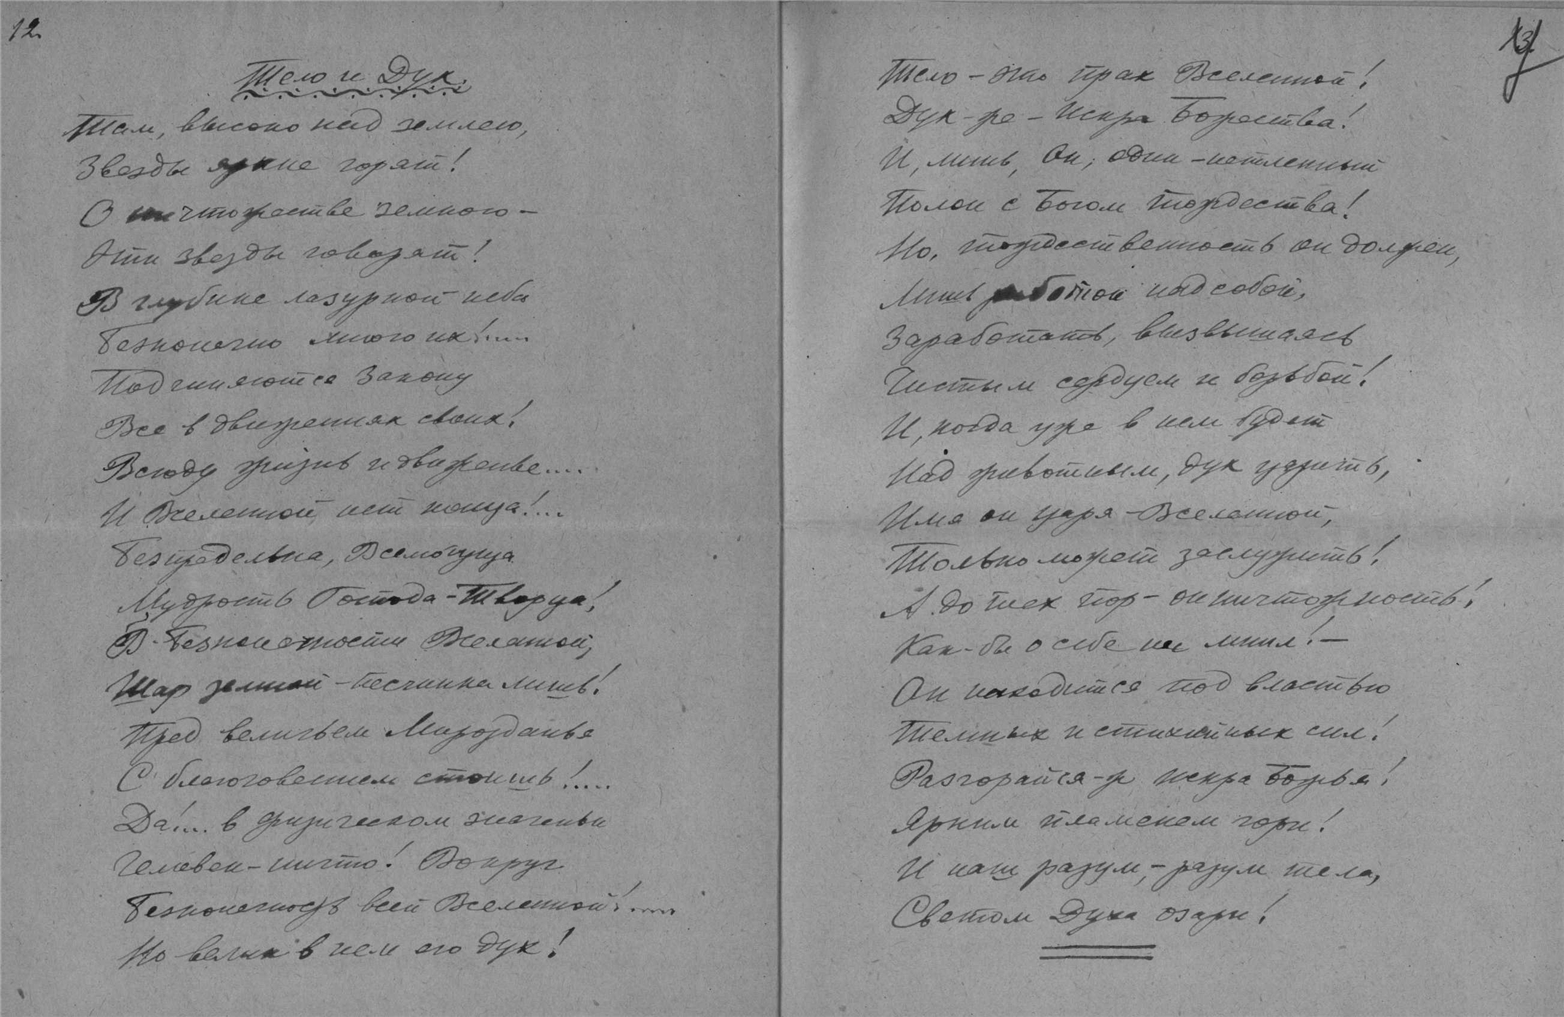 12.
Тело и Дух.
Там, высоко над землею,
Звезды яркие горят!
О ничтожестве земного –
Эти звезды говорят!
В глубине лазурной неба
Безконечно много их!....
Подчиняются Закону
Все в движениях своих!
Всюду жизнь и движенье....
И Вселенной нет конца!...
Безпредельна, Всемогуща
Мудрость Господа-Творца!
В безконечности Вселенной,
Шар земной – песчинка лишь!
Пред величьем Мирозданья
С благоговением стоишь!....
Да!... в физическом значеньи
Человек – ничто! Вокруг
Безконечность всей Вселенной!....
Но велик в нем его дух!
13.
Тело – это прах Вселенной!
Дух-же – Искра Божества!
И, лишь, Он, один – нетленный
Полон с Богом тождества!
Но, тождественность он должен,
Лишь работой над собой,
Заработать, возвышаясь
Чистым сердцем и борьбой!
И, когда уже в нем будет
Над животным, дух царить,
Имя он царя – Вселенной,
Только может заслужить!
А до тех пор – он ничтожность!
Как-бы о себе ни мнил! –
Он находится под властью
Темных и стихийных сил!
Разгорайся-ж искра Божья!
Ярким пламенем гори!
И наш разум, – разум тела,
Светом Духа озари!